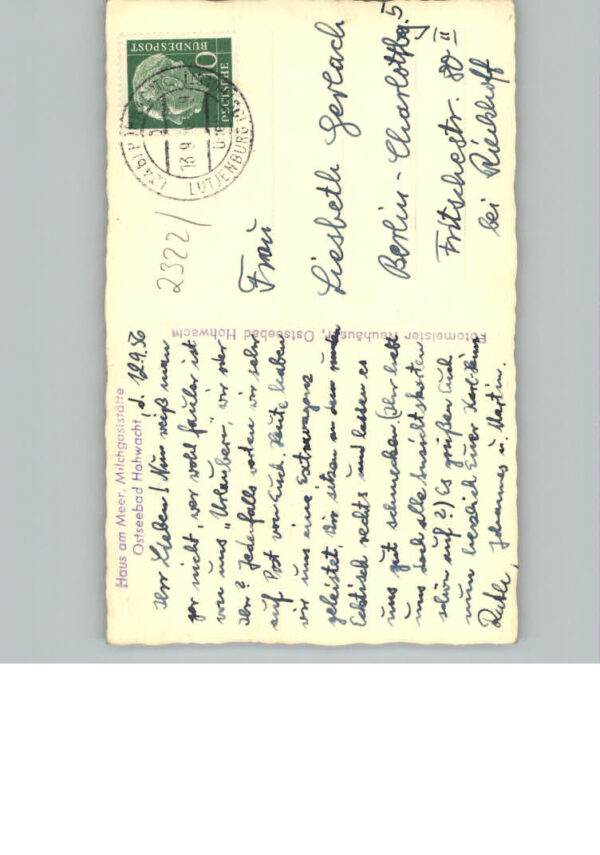 Haus am Meer, Milchgaststätte
Ostseebad Hohwacht, d. 12.9.56
Ihr Lieben! Nun weiß man
gar nicht, wer wohl fauler ist
von uns „Urlaubern", wir oder
Ihr? Jedenfalls warten wir sehr
auf Post von Euch. Heute haben
wir uns eine Extravaganz
geleistet. Wir sitzen an dem runden
Ecktisch rechts und lassen es
uns gut schmecken. (Ihr habt
uns doch alle Ansichtskarten
schön auf?) Es grüßen Euch
nun herzlich Euer
Ruthe, Johannes u. Martin.
Fotomeister Neuhäuser, Ostseebad Hohwacht
2322/
Frau
Liesbeth Gerlach
Berlin-Charlottbg. 5
Fritschestr. 80 II
bei Rieckhoff
DEUTSCHE
BUNDESPOST
10
LÜTJENBURG
13.9